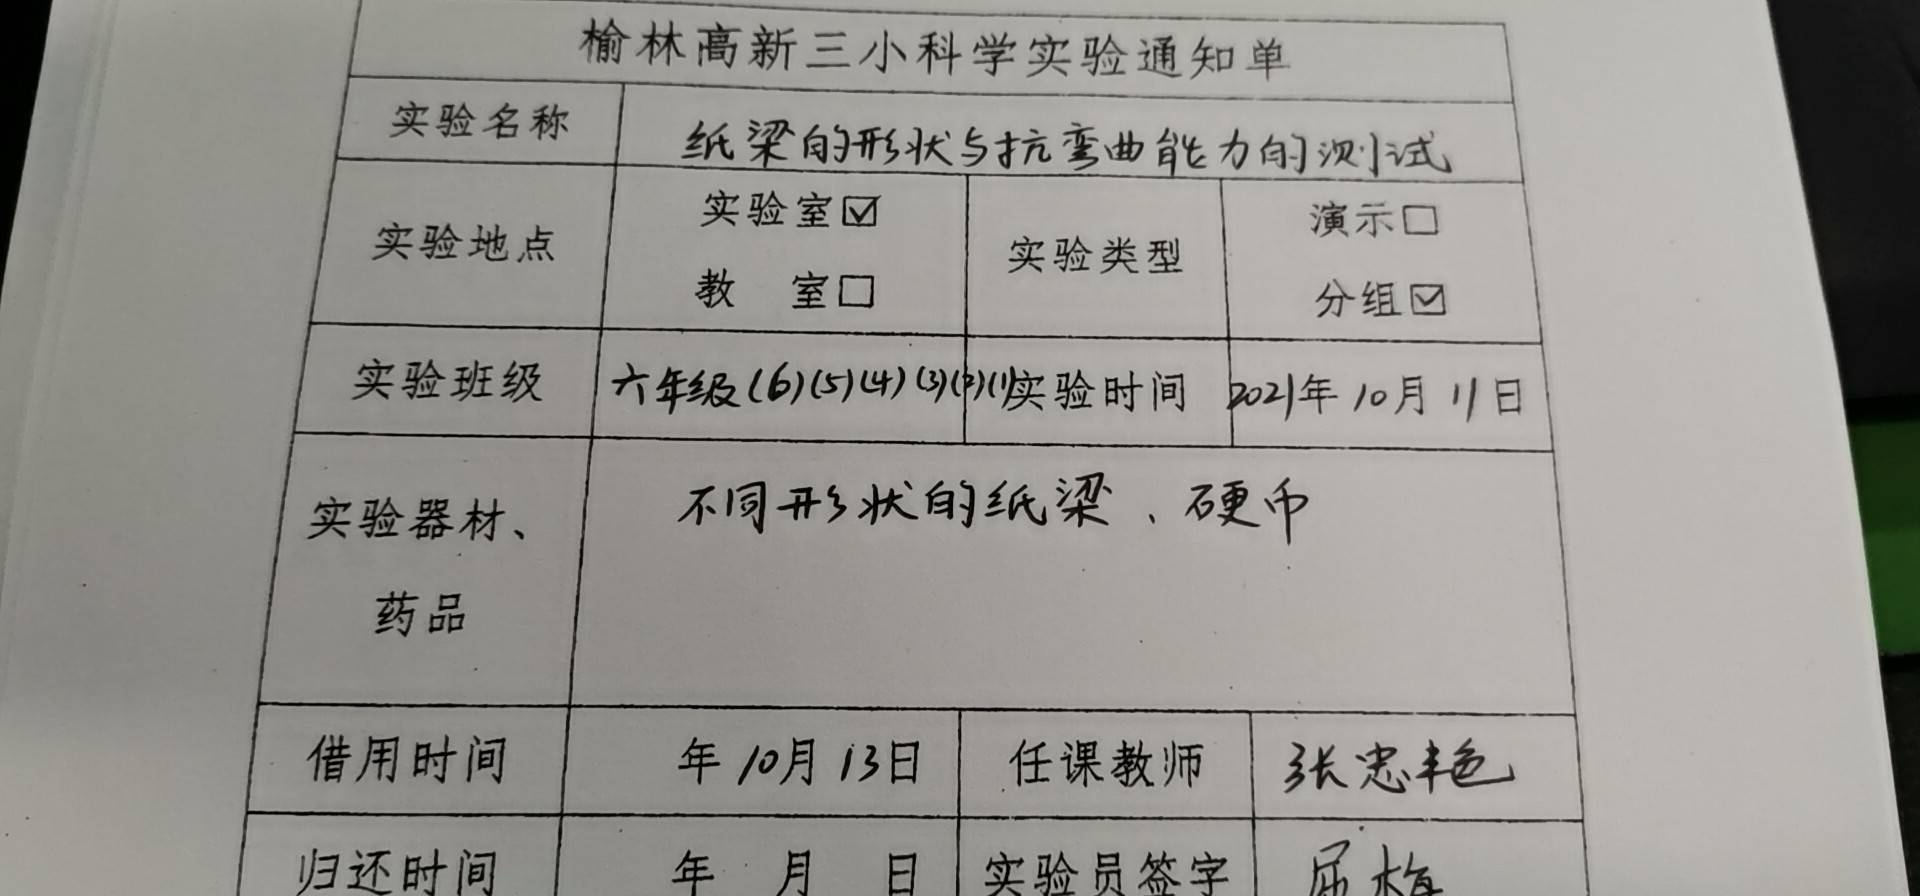 榆林高新三小科学实验通知单
实验名称 纸梁的形状与抗弯曲能力的测试
实验地点 实验室☑ 教 室□ 实验类型 演示□ 分组☑
实验班级 六年级(6)(5)(4)(3)(2)(1) 实验时间 2021年10月11日
实验器材、药品 不同形状的纸梁、硬币
借用时间 年10月13日 任课教师 张忠艳
归还时间 年 月 日 实验员签字 屈梅